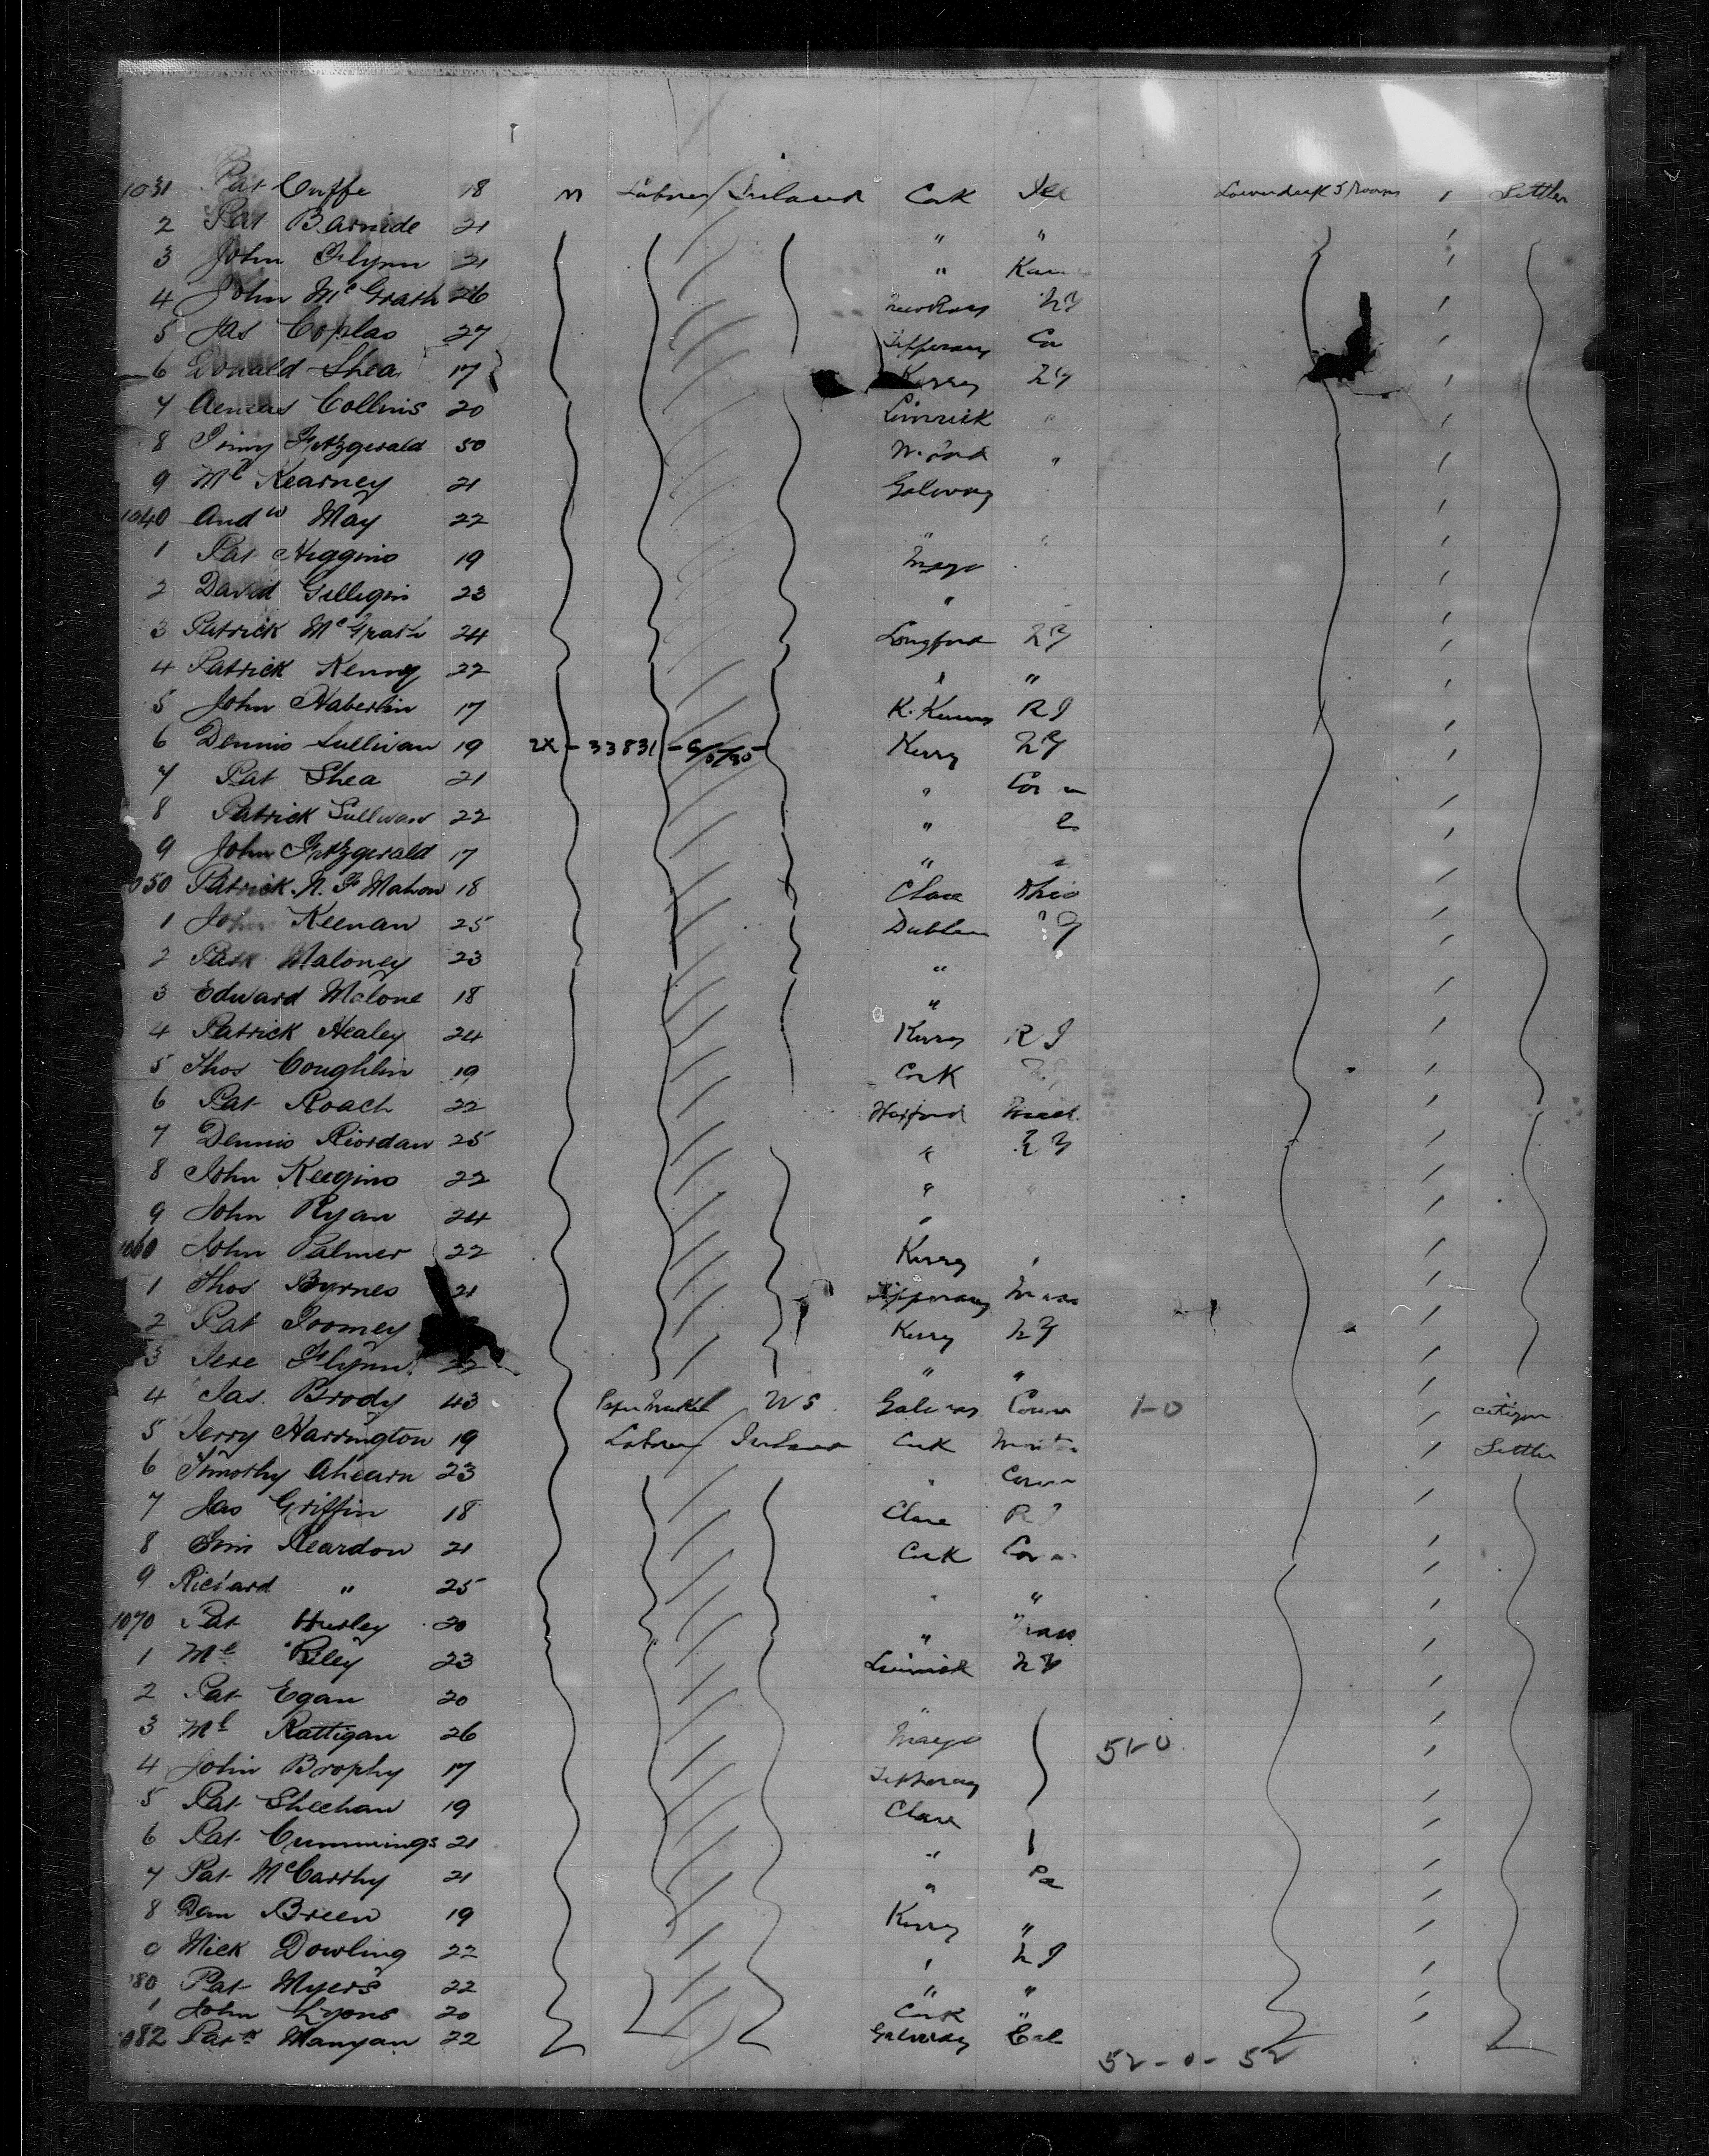 1031 Pat Cuffe 18 M Laborer Ireland Cork Ill Lowerdeck 5 Rooms 1 Settler
2 Pat Barnide 21 " "
3 John Flynn 21 "
4 John McGrath 26 NY
5 Jas Coplas 27 Tipperary
6 Donald Shea 17 Kerry NY
7 Aeneas Collins 20 Limerick "
8 Jimy Fitzgerald 50 W.ford "
9 Ml Kearney 21 Galway
1040 Andw May 22 "
1 Pat Higgins 19 Mayo
2 David Gilligan 23 "
3 Patrick McGrath 24 Longford NY
4 Patrick Kenny 22 " "
5 John Haberlin 17 K. Kenny RI
6 Dennis Sullivan 19 2X - 33831 - Kerry NY
7 Pat Shea 21 "
8 Patrick Sullivan 22 "
9 John Fitzgerald 17 "
1050 Patrick Mahon 18 Clare Ohio
1 John Keenan 25 Dublin
2 Patk Maloney 23 "
3 Edward Malone 18 "
4 Patrick Healey 24 Kerry RI
5 Thos Coughlin 19 Cork
6 Pat Roach 22 Wexford
7 Dennis Riordan 25 " NY
8 John Keegins 22 " "
9 John Ryan 24 "
1060 John Palmer 22 Kerry "
1 Thos Byrnes 21 Tipperary Mass
2 Pat Toomey Kerry NY
3 Jere Flynn 22 " "
4 Jas. Brody 43 Paper Maker US Galway Conn 1-0 citizen
5 Jerry Harrington 19 Laborer Ireland Cork Settler
6 Timothy Ahearn 23 " Conn
7 Jas Griffin 18 Clare RI
8 Jim Reardon 21 Cork Conn
9 Richard " 25 " "
1070 Pat Hurley 20 " Mass
1 Ml Riley 23 Limerick NY
2 Pat Egan 20 "
3 Ml Rattigan 26 Mayo 51-0
4 John Brophy 17 Tipperary
5 Pat Sheehan 19 Clare
6 Pat Cummings 21 "
7 Pat McCarthy 21 " Pa
8 Dan Breen 19 Kerry "
9 Mick Dowling 22 " NJ
80 Pat Myers 22 " "
1 John Lyons 20 Cork "
1082 Patk Mangan 22 Galway Cal
52-0-52